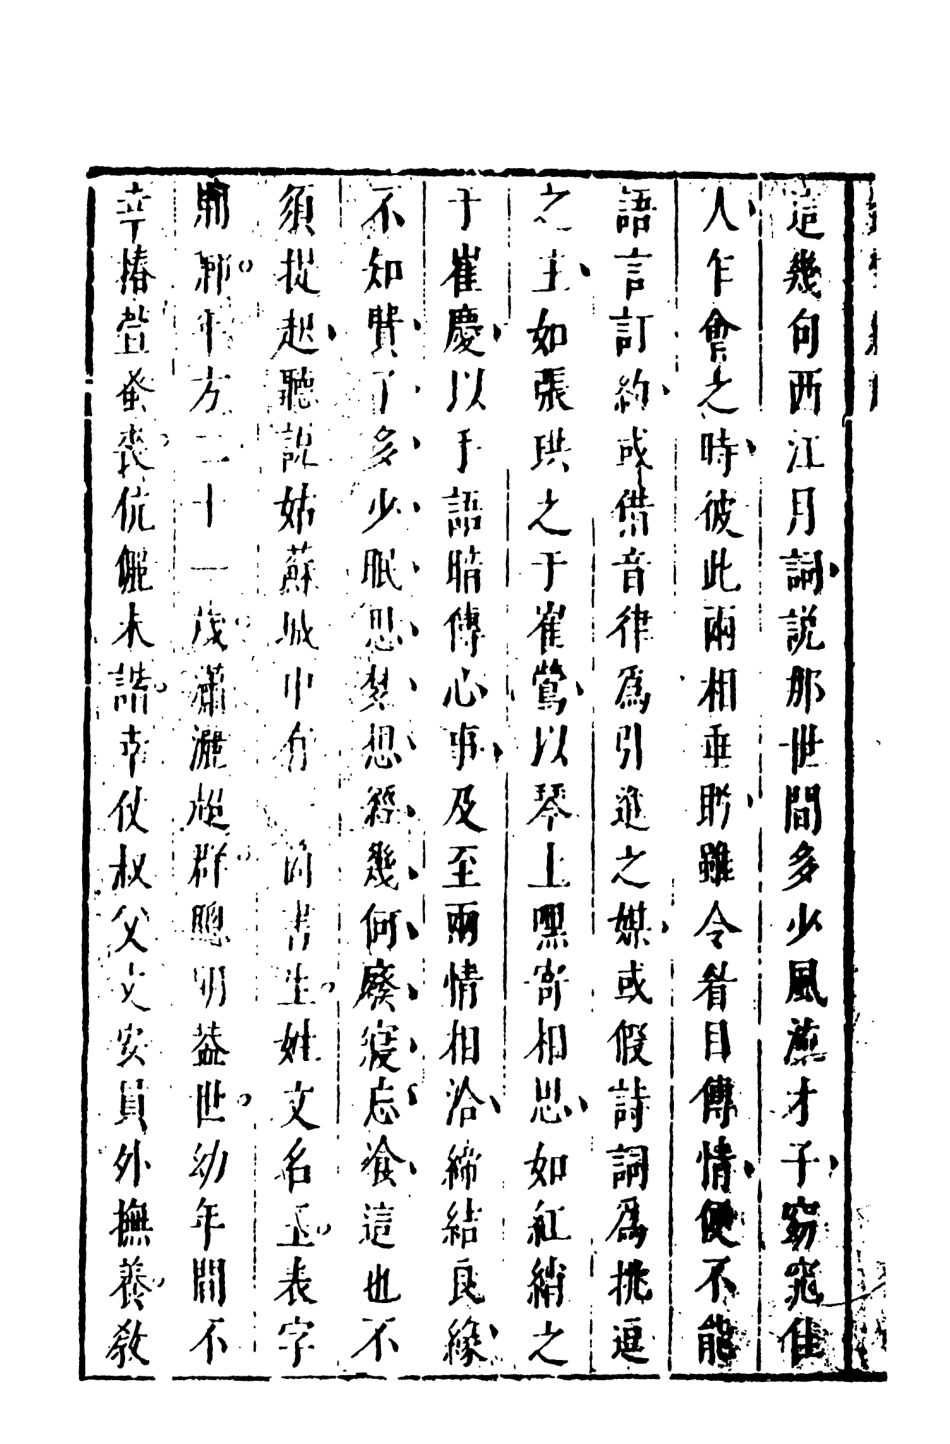 這幾句西江月詞說那世間多少風流才子窈窕佳
人乍會之時彼此兩相垂盻雖令眷目傳情便不能
語言訂約或借音律爲引進之媒或假詩詞爲挑逗
之主如張珙之于崔鶯以琴上嘿寄相思如紅綃之
于崔慶以手語暗傳心事及至兩情相洽締結良緣
不知費了多少眠思夢想經幾何廢寢忘飡這也不
須提起聽說姑蘇城中有一個書生姓文名玉表字
荆卿年方二十一歲瀟灑超群聰明蓋世幼年間不
幸椿萱蚤喪伉儷未諧幸仗叔父文安員外撫養敎